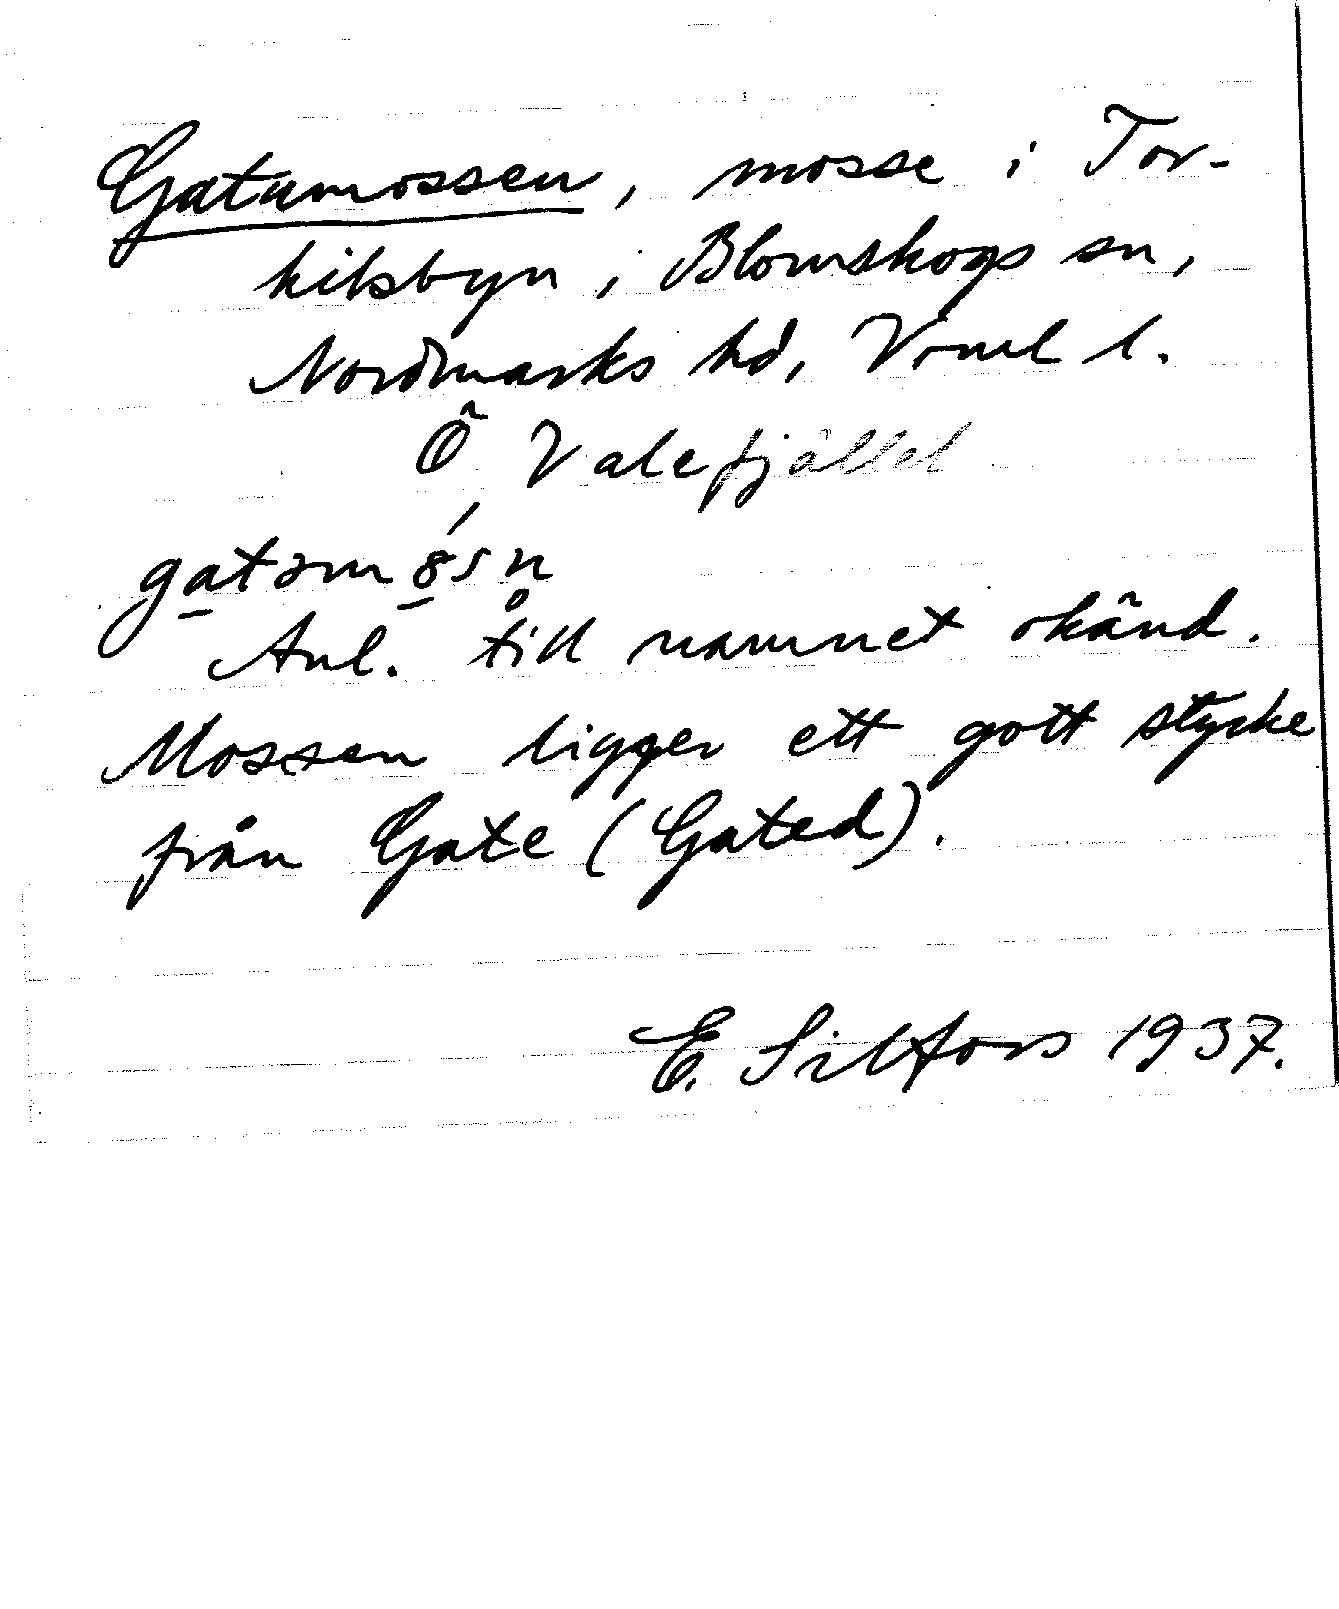 Gatumossen, mosse i Tor-
kilsbyn i Blomskogs sn,
Nordmarks hd, Vrml l.
Ö Valefjället
gatəmósn̥
Anl. till namnet okänd.
Mossen ligger ett gott stycke
från Gate (Gated).
E. Silfors 1937.